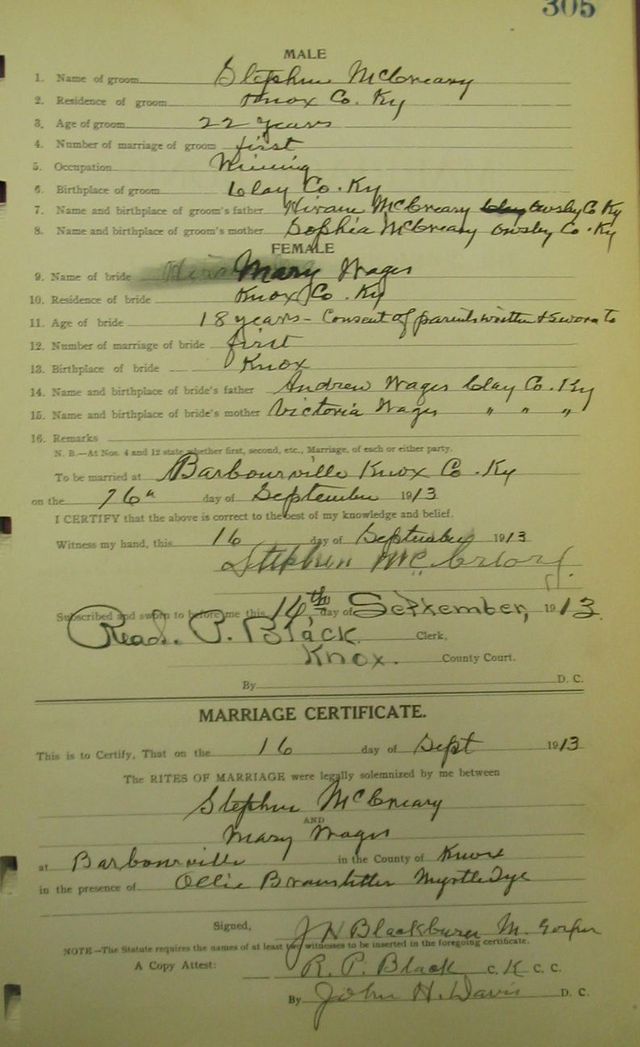 305
MALE
1. Name of groom Stephen McCreary
2. Residence of groom Knox Co. Ky
3. Age of groom 22 years
4. Number of marriage of groom first
5. Occupation Mining
6. Birthplace of groom Clay Co. Ky
7. Name and birthplace of groom's father Hiram McCreary Clay Owsley Co Ky
8. Name and birthplace of groom's mother Sophia McCreary Owsley Co. Ky
FEMALE
9. Name of bride Mary Wages
10. Residence of bride Knox Co. Ky
11. Age of bride 18 years - Consent of parents written & sworn to
12. Number of marriage of bride first
13. Birthplace of bride Knox
14. Name and birthplace of bride's father Andrew Wages Clay Co. Ky
15. Name and birthplace of bride's mother Victoria Wages " " "
16. Remarks
N. B.—At Nos. 4 and 12 state whether first, second, etc., Marriage, of each or either party.
To be married at Barbourville Knox Co. Ky
on the 16th day of September 1913
I CERTIFY that the above is correct to the best of my knowledge and belief.
Witness my hand, this 16 day of September 1913
Stephen McCreary
Subscribed and sworn to before me this 16th day of September, 1913
Read. P. Black Clerk,
Knox. County Court.
By D. C.
MARRIAGE CERTIFICATE.
This is to Certify, That on the 16 day of Sept 1913
The RITES OF MARRIAGE were legally solemnized by me between
Stephen McCreary
AND
Mary Wages
at Barbourville in the County of Knox
in the presence of Ollie Myrtle Dye
Signed, J N Blackburn M. Gospel
NOTE—The Statute requires the names of at least two witnesses to be inserted in the foregoing certificate.
A Copy Attest: R. P. Black C. K C. C.
By John H. Davis D. C.